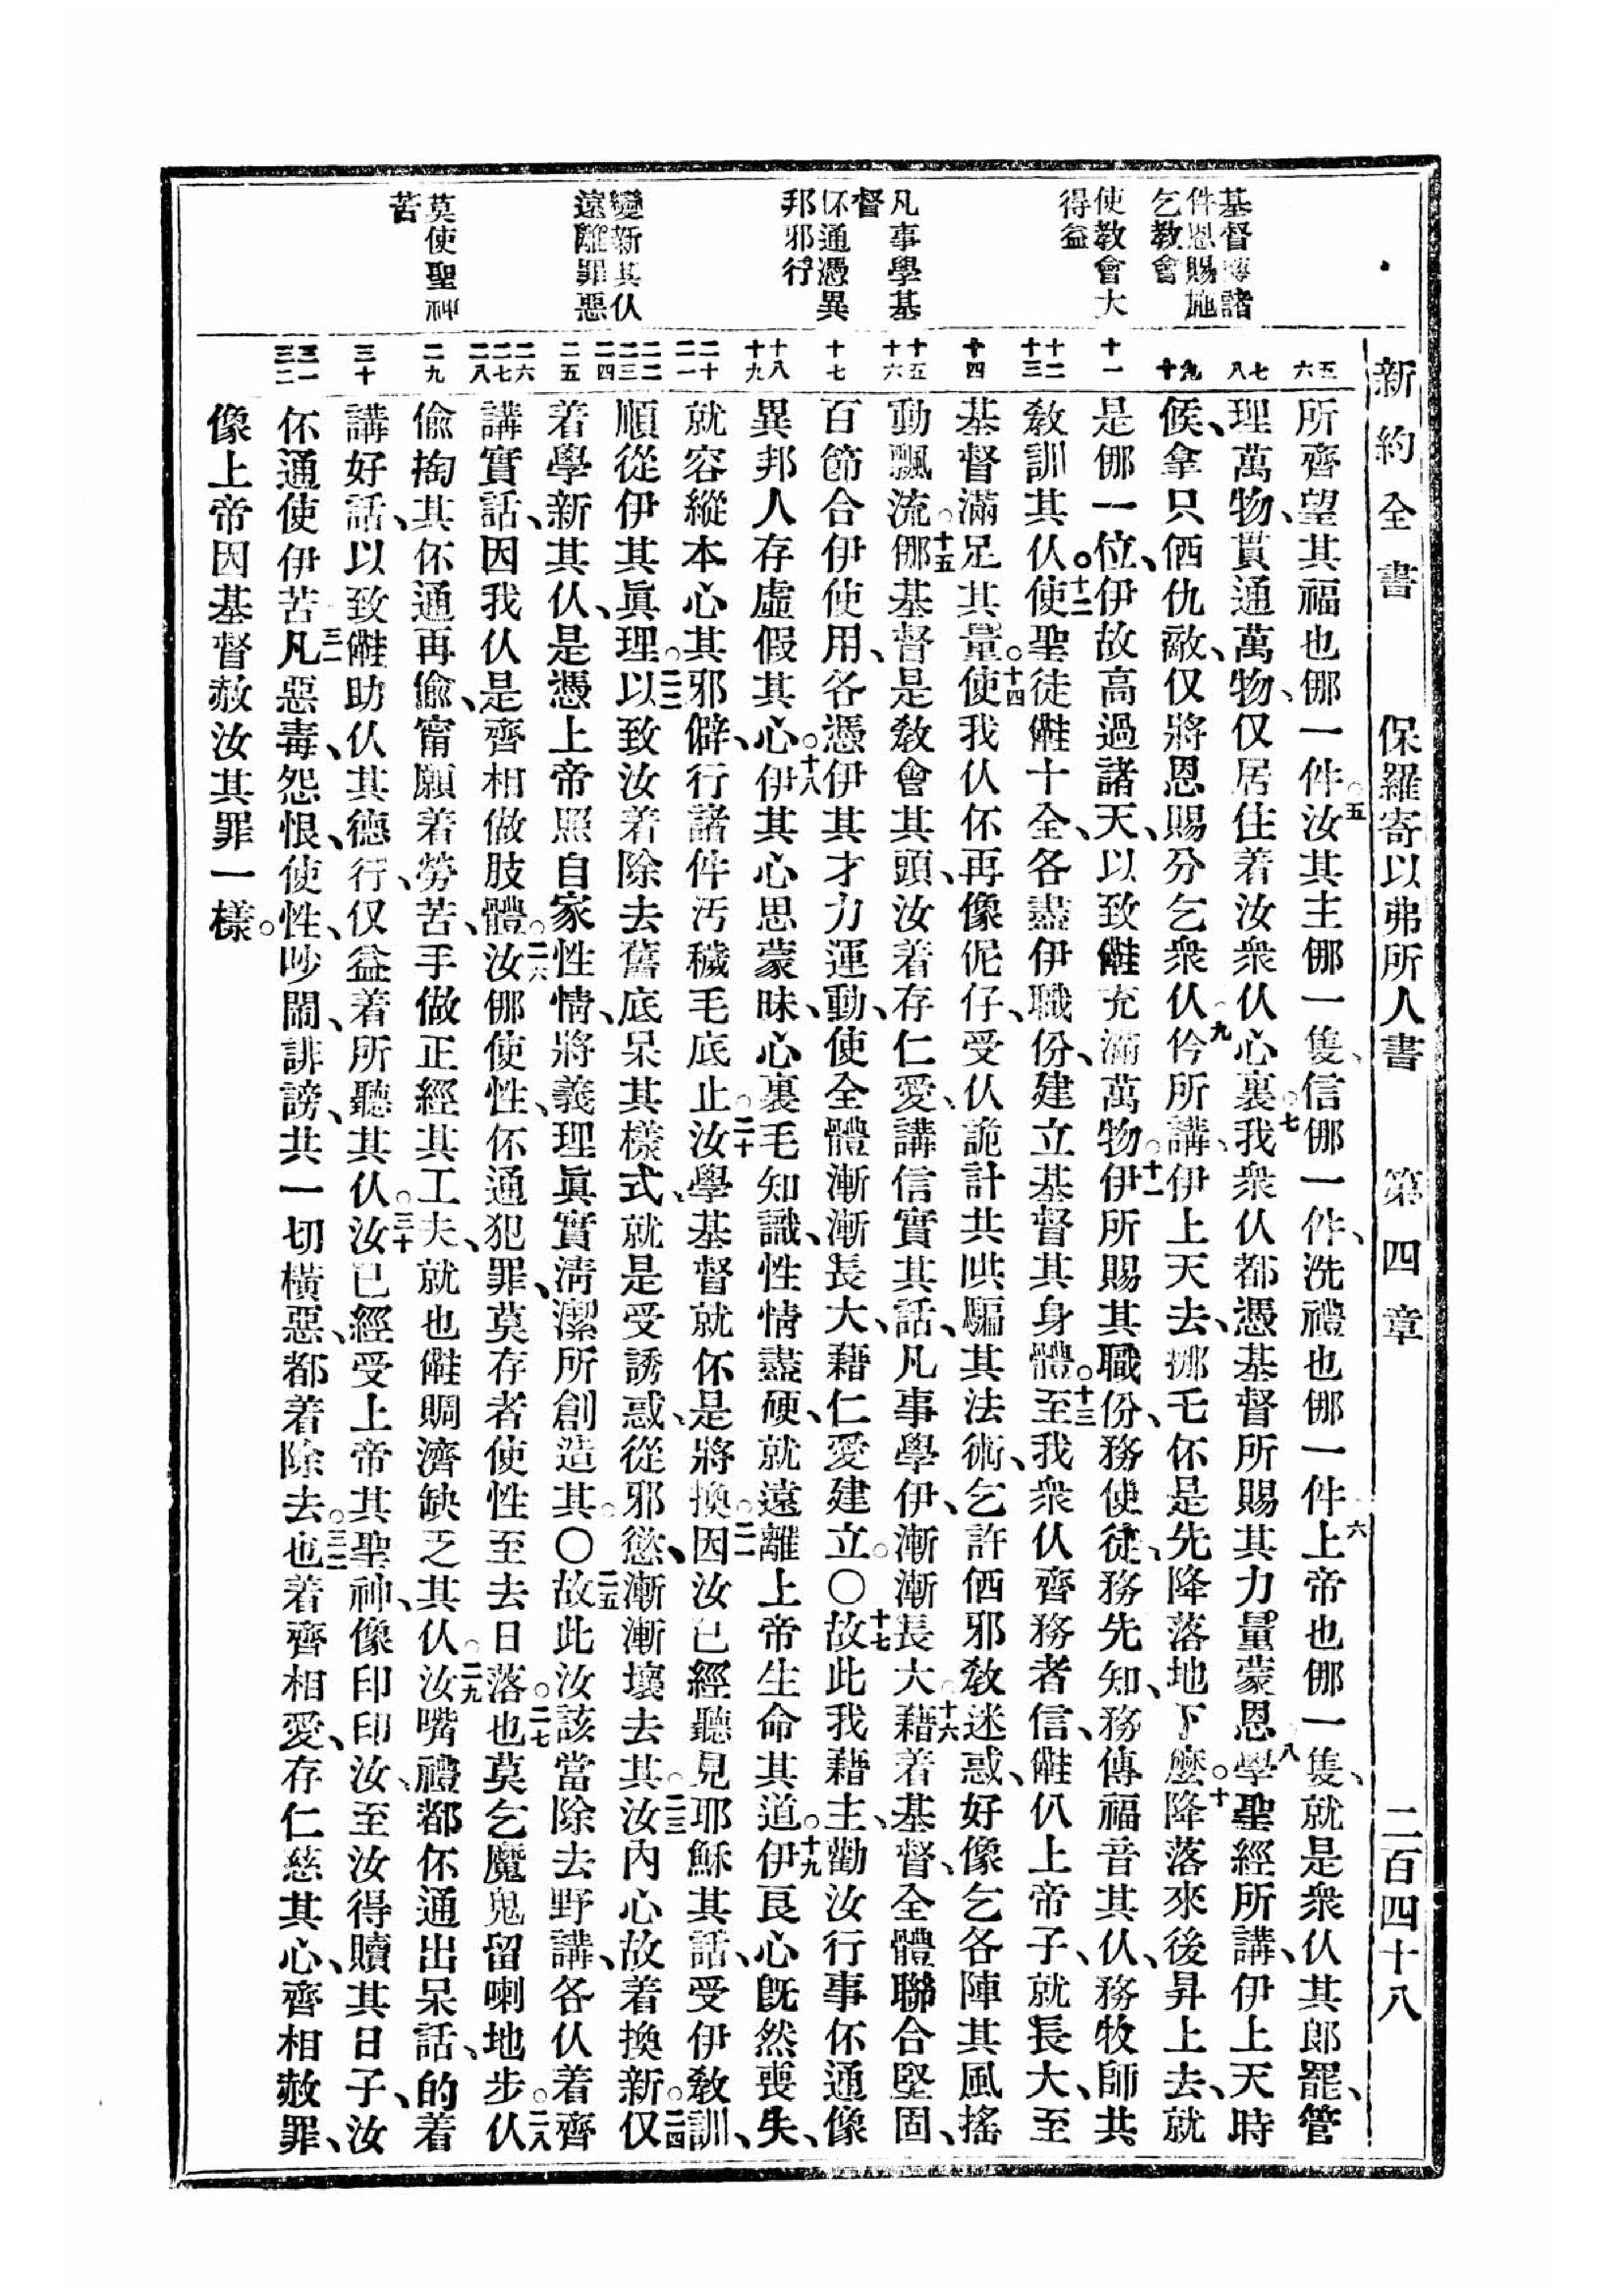 新約全書　保羅寄以弗所人書　第四章　二百四十八
基督將諸
件恩賜施
乞教會
使教會大
得益
凡事學基
督
伓通憑異
邦邪行
變新其仈
遠離罪惡
莫使聖神
苦
五 六 七 八 九 十 十一 十二 十三 十四 十五 十六 十七 十八 十九 二十 二一 二二 二三 二四 二五 二六 二七 二八 二九 三十 三一 三二
所齊望其福也㑚一件○五汝其主㑚一隻、信㑚一件、洗禮也㑚一件六上帝也㑚一隻、就是衆仈其郎罷、管
理萬物、貫通萬物、仅居住着汝衆仈心裏○七我衆仈都憑基督所賜其力量蒙恩八學聖經所講、伊上天時
候、拿只仴仇敵、仅將恩賜分乞衆仈九仱所講、伊上天去、挪乇伓是先降落地下麽○十降落來後昇上去、就
是㑚一位、伊故高過諸天、以致𠆧充滿萬物○十一伊所賜其職份、務使徒、務先知、務傳福音其仈、務牧師共
敎訓其仈○十二使聖徒𠆧十全、各盡伊職份、建立基督其身體○十三至我衆仈齊務者信、𠆧仈上帝子、就長大、至
基督滿足其量○十四使我仈伓再像伲仔、受仈詭計共哄騙其法術、乞許仴邪敎迷惑、好像乞各陣其風搖
動飄流○十五㑚基督是敎會其頭、汝着存仁愛、講信實其話、凡事學伊、漸漸長大○十六藉着基督、全體聯合堅固、
百節合伊使用、各憑伊其才力運動、使全體漸漸長大、藉仁愛建立○〇十七故此我藉主、勸汝行事伓通像
異邦人存虛假其心○十八伊其心思蒙昧、心裏毛知識、性情盡硬、就遠離上帝生命其道○十九伊良心旣然喪失、
就容縱本心其邪僻、行諸件汚穢毛底止○二十汝學基督就伓是將換○二一因汝已經聽見耶穌其話、受伊敎訓、
順從伊其眞理○二二以致汝着除去舊底呆其樣式、就是受誘惑、從邪慾、漸漸壞去其○二三汝內心故着換新○二四仅
着學新其仈、是憑上帝照自家性情、將義理眞實淸潔所創造其○〇二五故此汝該當除去野講、各仈着齊
講實話、因我仈是齊相做肢體○二六汝㑚使性、伓通犯罪、莫存者使性至去日落○二七也莫乞魔鬼留喇地步○二八仈
偸掏其伓通再偸、甯願着勞苦、手做正經其工夫、就也𠆧賙濟缺乏其仈○二九汝嘴禮都伓通出呆話、的着
講好話、以致𠆧助仈其德行、仅益着所聽其仈○三十汝已經受上帝其聖神、像印印汝、至汝得贖其日子、汝
伓通使伊苦三一凡惡毒、怨恨、使性、吵鬧、誹謗、共一切橫惡、都着除去○三二也着齊相愛、存仁慈其心、齊相赦罪、
像上帝因基督赦汝其罪一樣。